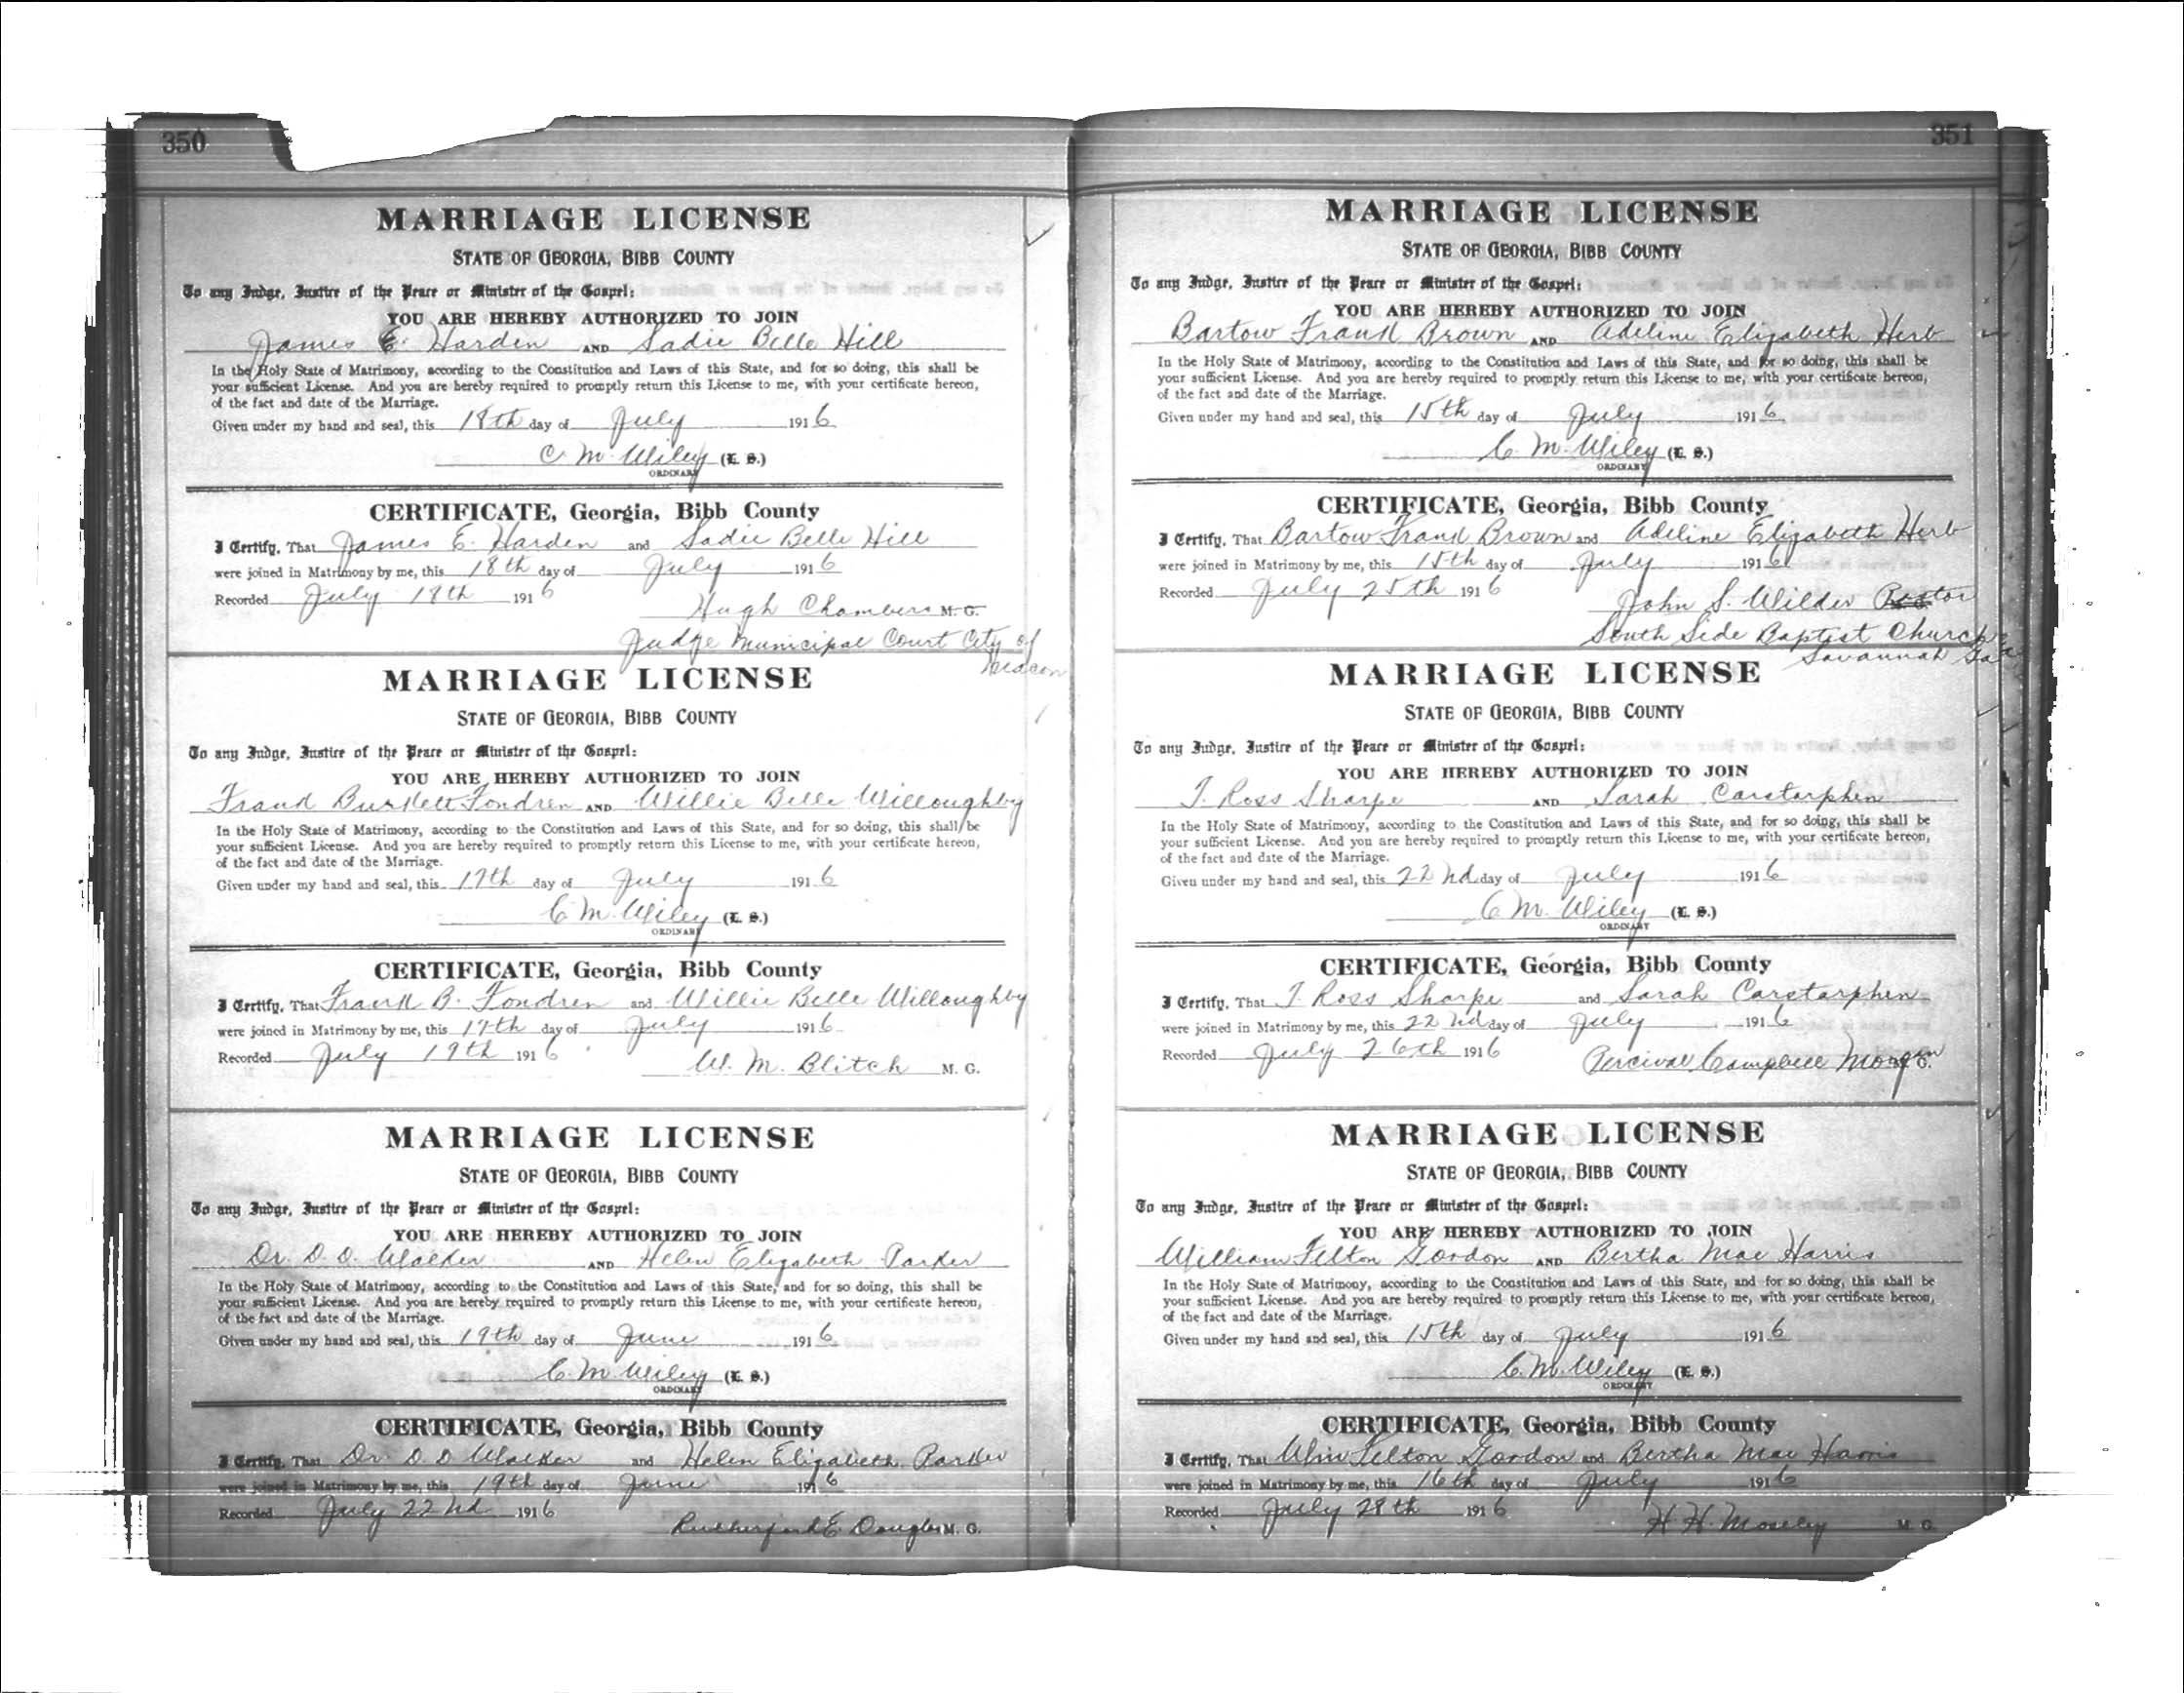 350
MARRIAGE LICENSE
STATE OF GEORGIA, BIBB COUNTY
To any Judge, Justice of the Peace or Minister of the Gospel:
YOU ARE HEREBY AUTHORIZED TO JOIN
James E. Harden AND Sadie Belle Hill
In the Holy State of Matrimony, according to the Constitution and Laws of this State, and for so doing, this shall be
your sufficient License. And you are hereby required to promptly return this License to me, with your certificate hereon,
of the fact and date of the Marriage.
Given under my hand and seal, this 18th day of July 1916
C. M. Wiley (L. S.)
ORDINARY
CERTIFICATE, Georgia, Bibb County
I Certify, That James E. Harden and Sadie Belle Hill
were joined in Matrimony by me, this 18th day of July 1916
Recorded July 18th 1916
Hugh Chambers M. G.
Judge Municipal Court City of
Macon
MARRIAGE LICENSE
STATE OF GEORGIA, BIBB COUNTY
To any Judge, Justice of the Peace or Minister of the Gospel:
YOU ARE HEREBY AUTHORIZED TO JOIN
Frank Burkett Fondren AND Willie Belle Willoughby
In the Holy State of Matrimony, according to the Constitution and Laws of this State, and for so doing, this shall be
your sufficient License. And you are hereby required to promptly return this License to me, with your certificate hereon,
of the fact and date of the Marriage.
Given under my hand and seal, this day of July 1916
C. M. Wiley (L. S.)
ORDINARY
CERTIFICATE, Georgia, Bibb County
I Certify, That Frank B. Fondren and Willie Belle Willoughby
were joined in Matrimony by me, this day of July 1916
Recorded July 19th 1916
W. M. Blitch M. G.
MARRIAGE LICENSE
STATE OF GEORGIA, BIBB COUNTY
To any Judge, Justice of the Peace or Minister of the Gospel:
YOU ARE HEREBY AUTHORIZED TO JOIN
Dr. D. D. Walker AND Helen Elizabeth Parker
In the Holy State of Matrimony, according to the Constitution and Laws of this State, and for so doing, this shall be
your sufficient License. And you are hereby required to promptly return this License to me, with your certificate hereon,
of the fact and date of the Marriage.
Given under my hand and seal, this 19th day of June 1916
C. M. Wiley (L. S.)
ORDINARY
CERTIFICATE, Georgia, Bibb County
I Certify, That Dr. D. D. Walker and Helen Elizabeth Parker
were joined in Matrimony by me, this 19th day of June 1916
Recorded July 22nd 1916
Rutherford E. Douglas M. G.
351
MARRIAGE LICENSE
STATE OF GEORGIA, BIBB COUNTY
To any Judge, Justice of the Peace or Minister of the Gospel:
YOU ARE HEREBY AUTHORIZED TO JOIN
Bartow Frank Brown AND Adeline Elizabeth Herb
In the Holy State of Matrimony, according to the Constitution and Laws of this State, and for so doing, this shall be
your sufficient License. And you are hereby required to promptly return this License to me, with your certificate hereon,
of the fact and date of the Marriage.
Given under my hand and seal, this 15th day of July 1916
C. M. Wiley (L. S.)
ORDINARY
CERTIFICATE, Georgia, Bibb County
I Certify, That Bartow Frank Brown and Adeline Elizabeth Herb
were joined in Matrimony by me, this 15th day of July 1916
Recorded July 25th 1916
John S. Wilder Pastor
South Side Baptist Church
Savannah Ga
MARRIAGE LICENSE
STATE OF GEORGIA, BIBB COUNTY
To any Judge, Justice of the Peace or Minister of the Gospel:
YOU ARE HEREBY AUTHORIZED TO JOIN
T. Ross Sharpe AND Sarah Carstarphen
In the Holy State of Matrimony, according to the Constitution and Laws of this State, and for so doing, this shall be
your sufficient License. And you are hereby required to promptly return this License to me, with your certificate hereon,
of the fact and date of the Marriage.
Given under my hand and seal, this 22nd day of July 1916
C. M. Wiley (L. S.)
ORDINARY
CERTIFICATE, Georgia, Bibb County
I Certify, That T. Ross Sharpe and Sarah Carstarphen
were joined in Matrimony by me, this 22nd day of July 1916
Recorded July 26th 1916
Percival Campbell Morgan M. G.
MARRIAGE LICENSE
STATE OF GEORGIA, BIBB COUNTY
To any Judge, Justice of the Peace or Minister of the Gospel:
YOU ARE HEREBY AUTHORIZED TO JOIN
William Felton Gordon AND Bertha Mae Harris
In the Holy State of Matrimony, according to the Constitution and Laws of this State, and for so doing, this shall be
your sufficient License. And you are hereby required to promptly return this License to me, with your certificate hereon,
of the fact and date of the Marriage.
Given under my hand and seal, this 15th day of July 1916
C. M. Wiley (L. S.)
ORDINARY
CERTIFICATE, Georgia, Bibb County
I Certify, That Wm Felton Gordon and Bertha Mae Harris
were joined in Matrimony by me, this 16th day of July 1916
Recorded July 28th 1916
H. H. Moseley M. G.